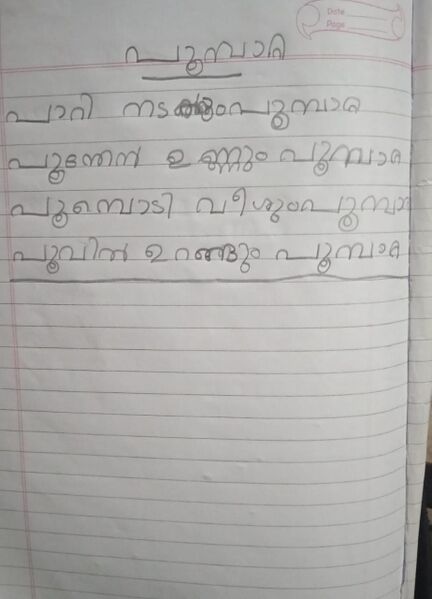 Date
Page
പൂമ്പാറ്റ
പാറി നടക്കും പൂമ്പാറ്റ
പൂന്തേൻ ഉണ്ണും പൂമ്പാറ്റ
പൂമ്പൊടി വീശും പൂമ്പാറ്റ
പൂവിൽ ഉറങ്ങും പൂമ്പാറ്റ